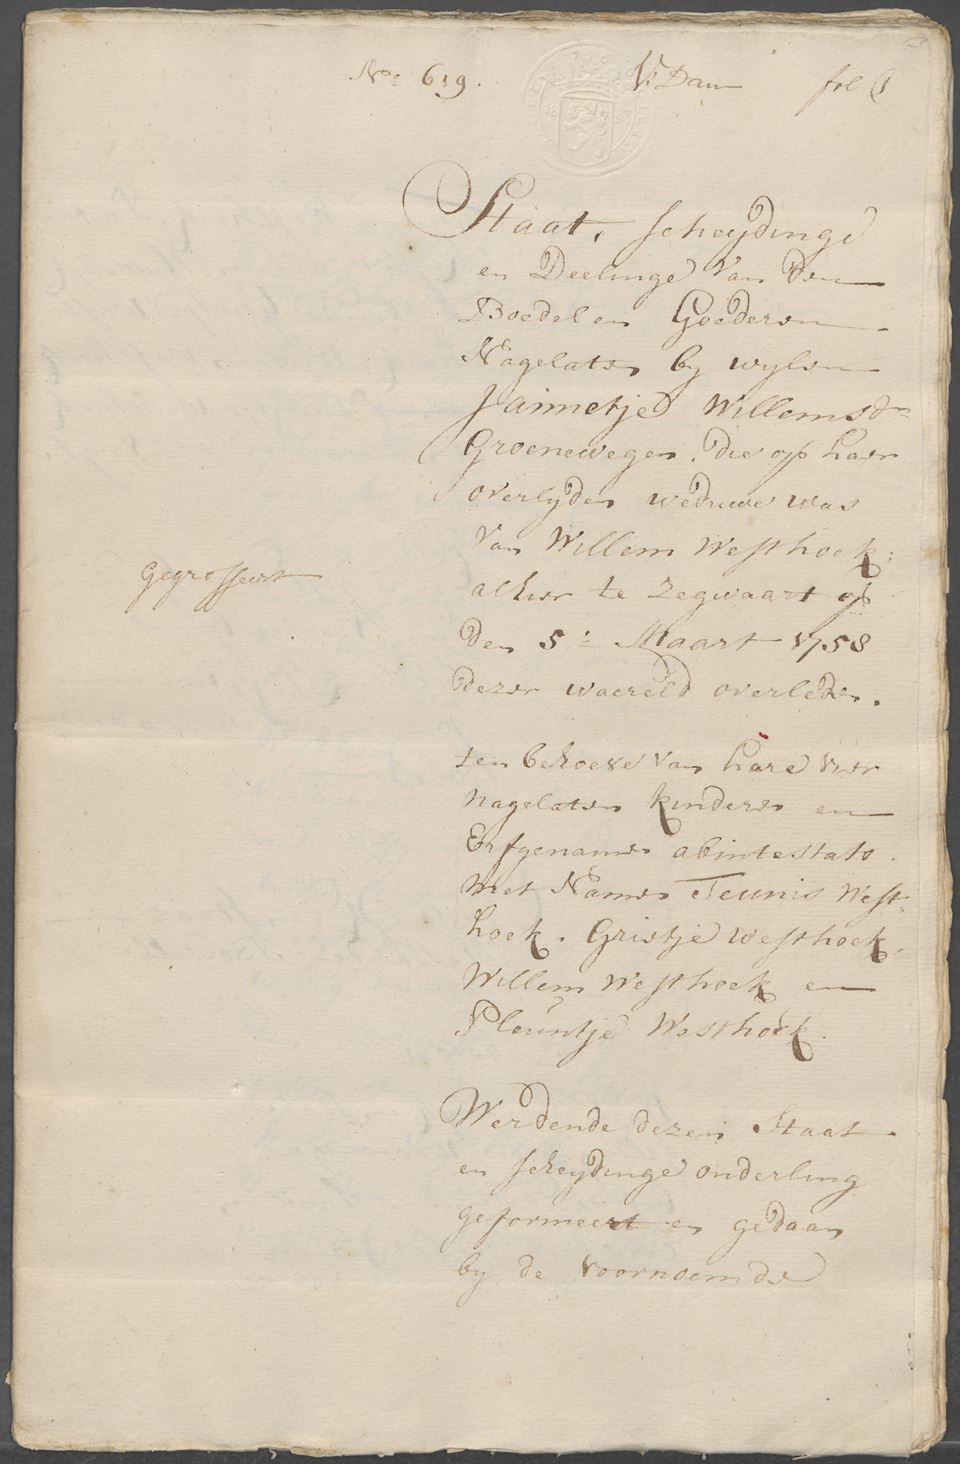 No. 619.
V: Dam
fol 1
Staat, scheydinge
en Deelinge van den
Boedel en Goederen
Nagelaten by wylen
Jannetje Willemsdr
Groenewegen, die op haer
overlyden weduwe was
van Willem Westhoek
alhier te Zegwaart op
den 5e Maart 1758
dezer waereld overleden.
Gegrosseert
ten behoeve van hare vier
nagelaten kinderen en
Erfgenamen abintestato
met Namen Teunis West-
hoek, Grietje Westhoek,
Willem Westhoek en
Pleuntje Westhoek.
Werdende dezen Staat
en scheydinge onderling
geformeert en gedaan
by de voornoemde